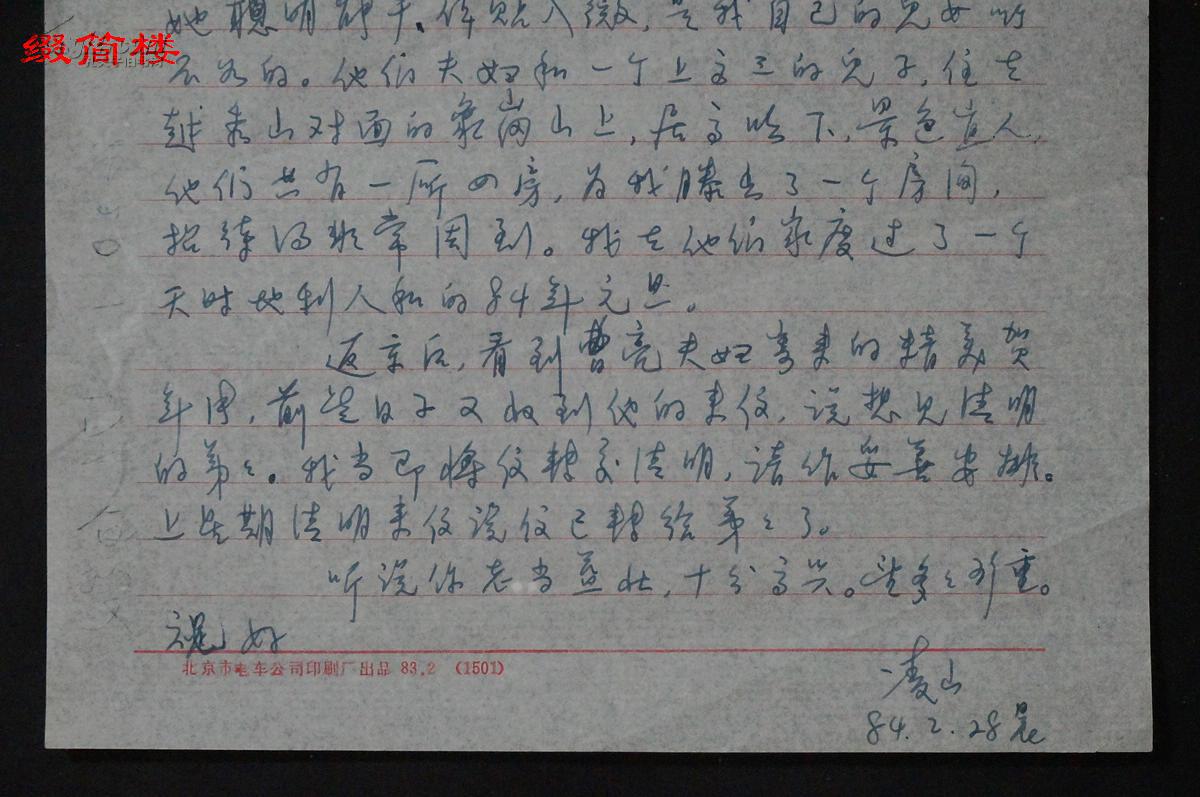 缀偷楼
她聪明能干、体贴入微，是我自己的儿女所
不如的。他们夫妇和一个上高三的儿子，住在
越秀山对面的象岗山上，居高临下，景色宜人，
他们共有一所四房，为我腾出了一个房间，
招待得非常周到。我在他们家度过了一个
天时地利人和的84年元旦。
返京后，看到曹亮夫妇寄来的精美贺
年片，前些日子又收到他的来信，说想见清明
的弟々。我当即将信转交清明，请作妥善安排。
上星期清明来信说信已转给弟々了。
听说你老当益壮，十分高兴。望多々珍重。
祝好
北京市电车公司印刷厂出品 83.2 (1501)
凌山
84.2.28晨